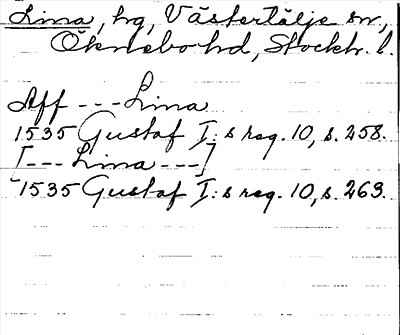 Lina, hg, Västertälje sn,
Öknebo hd, Stockh. l.
Aff --- Lina
1535 Gustaf I:s reg. 10, s. 258.
[--- Lina ---]
1535 Gustaf I:s reg. 10, s. 263.